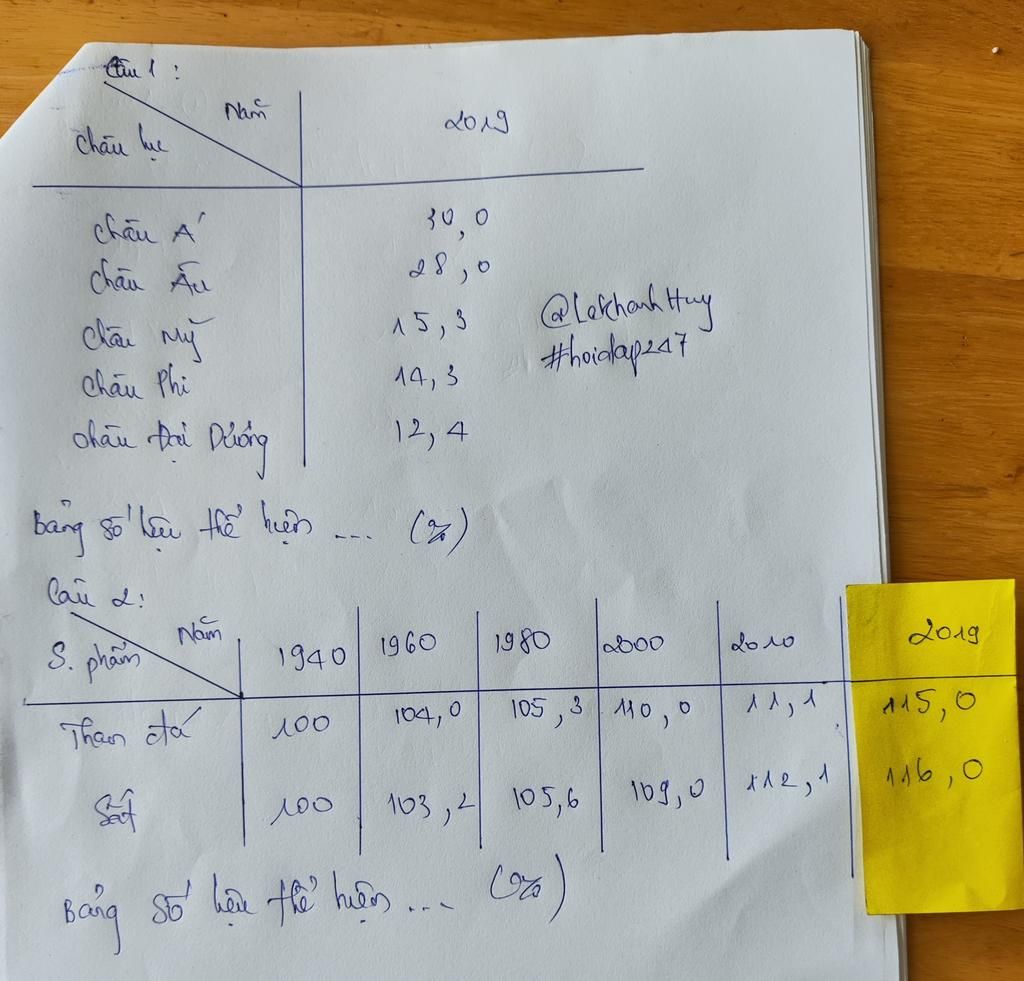 Câu 1 :
Năm 2019
Châu lục
Châu Á 30,0
Châu Âu 28,0
Châu Mỹ 15,3
Châu Phi 14,3
Châu Đại Dương 12,4
@LekhanhHuy
#hoidap247
Bảng số liệu thể hiện ... (%)
Câu 2:
Năm 1940 1960 1980 2000 2010 2019
S. phẩm
Than đá 100 104,0 105,3 110,0 11,1 115,0
Sắt 100 103,2 105,6 109,0 112,1 116,0
Bảng số liệu thể hiện ... (%)